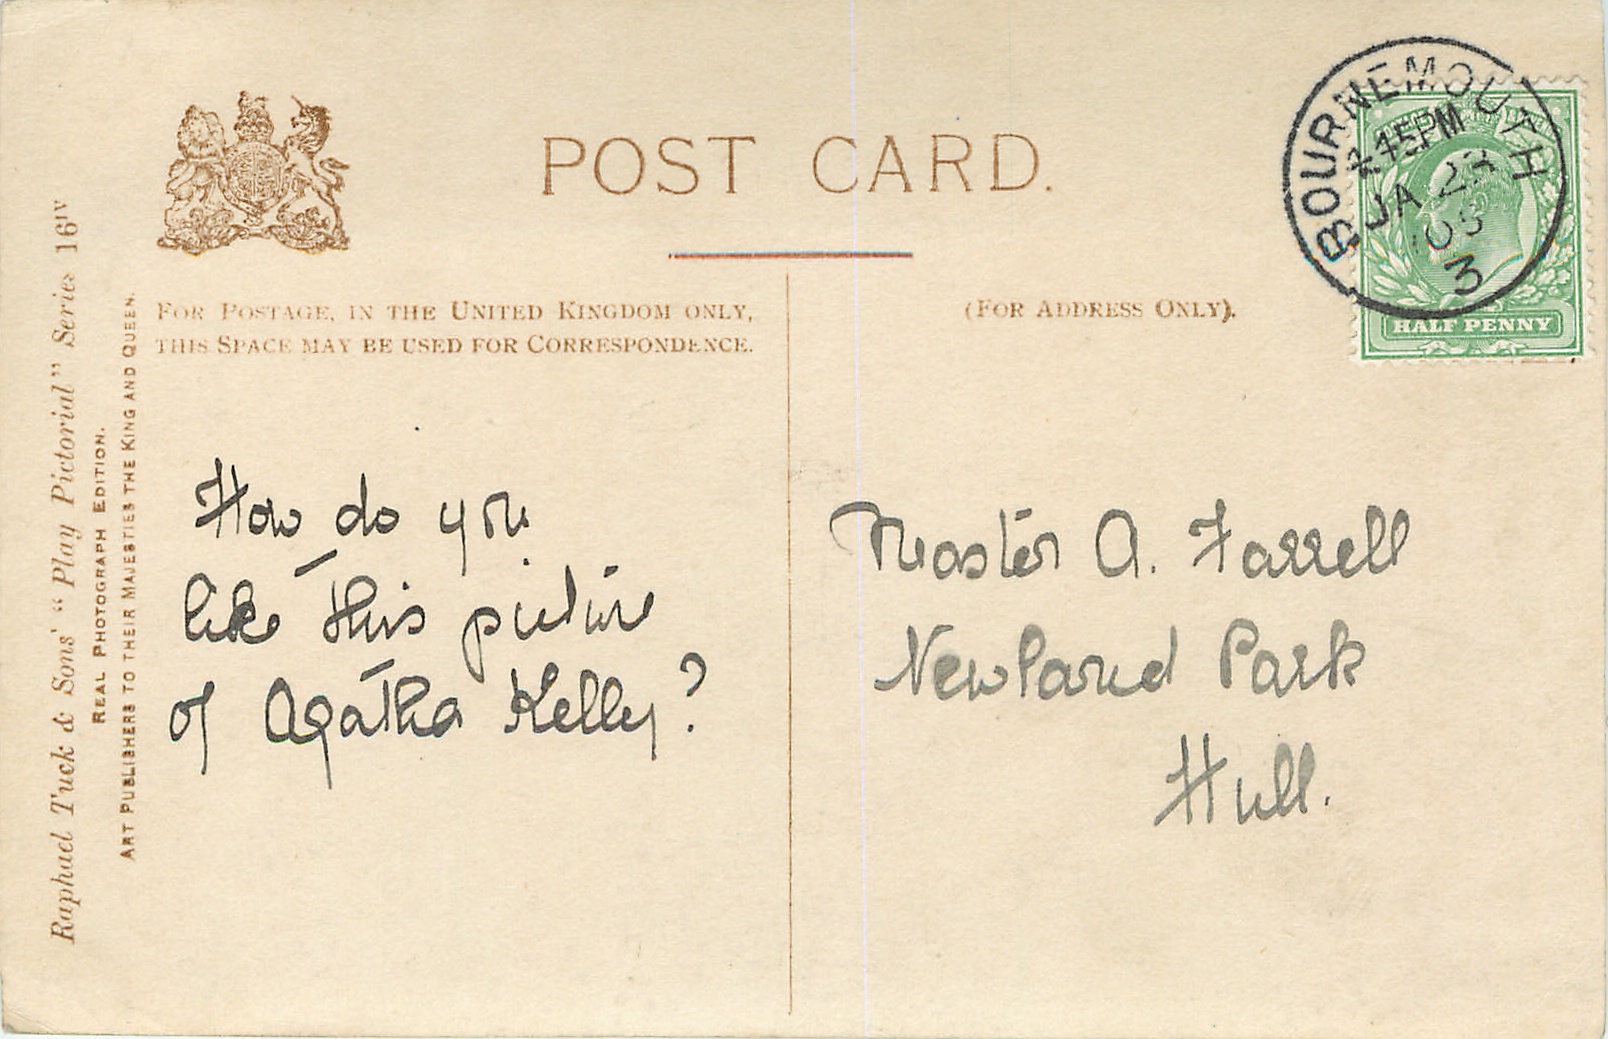 POST CARD.
FOR POSTAGE, IN THE UNITED KINGDOM ONLY,
THIS SPACE MAY BE USED FOR CORRESPONDENCE.
(FOR ADDRESS ONLY).
Raphael Tuck & Sons' "Play Pictorial" Series 16IV
REAL PHOTOGRAPH EDITION.
ART PUBLISHERS TO THEIR MAJESTIES THE KING AND QUEEN.
How do you
like this picture
of Agatha Kelly?
Master A. Farrell
Newland Park
Hull.
BOURNEMOUTH
15PM
JA 23
3
HALF PENNY